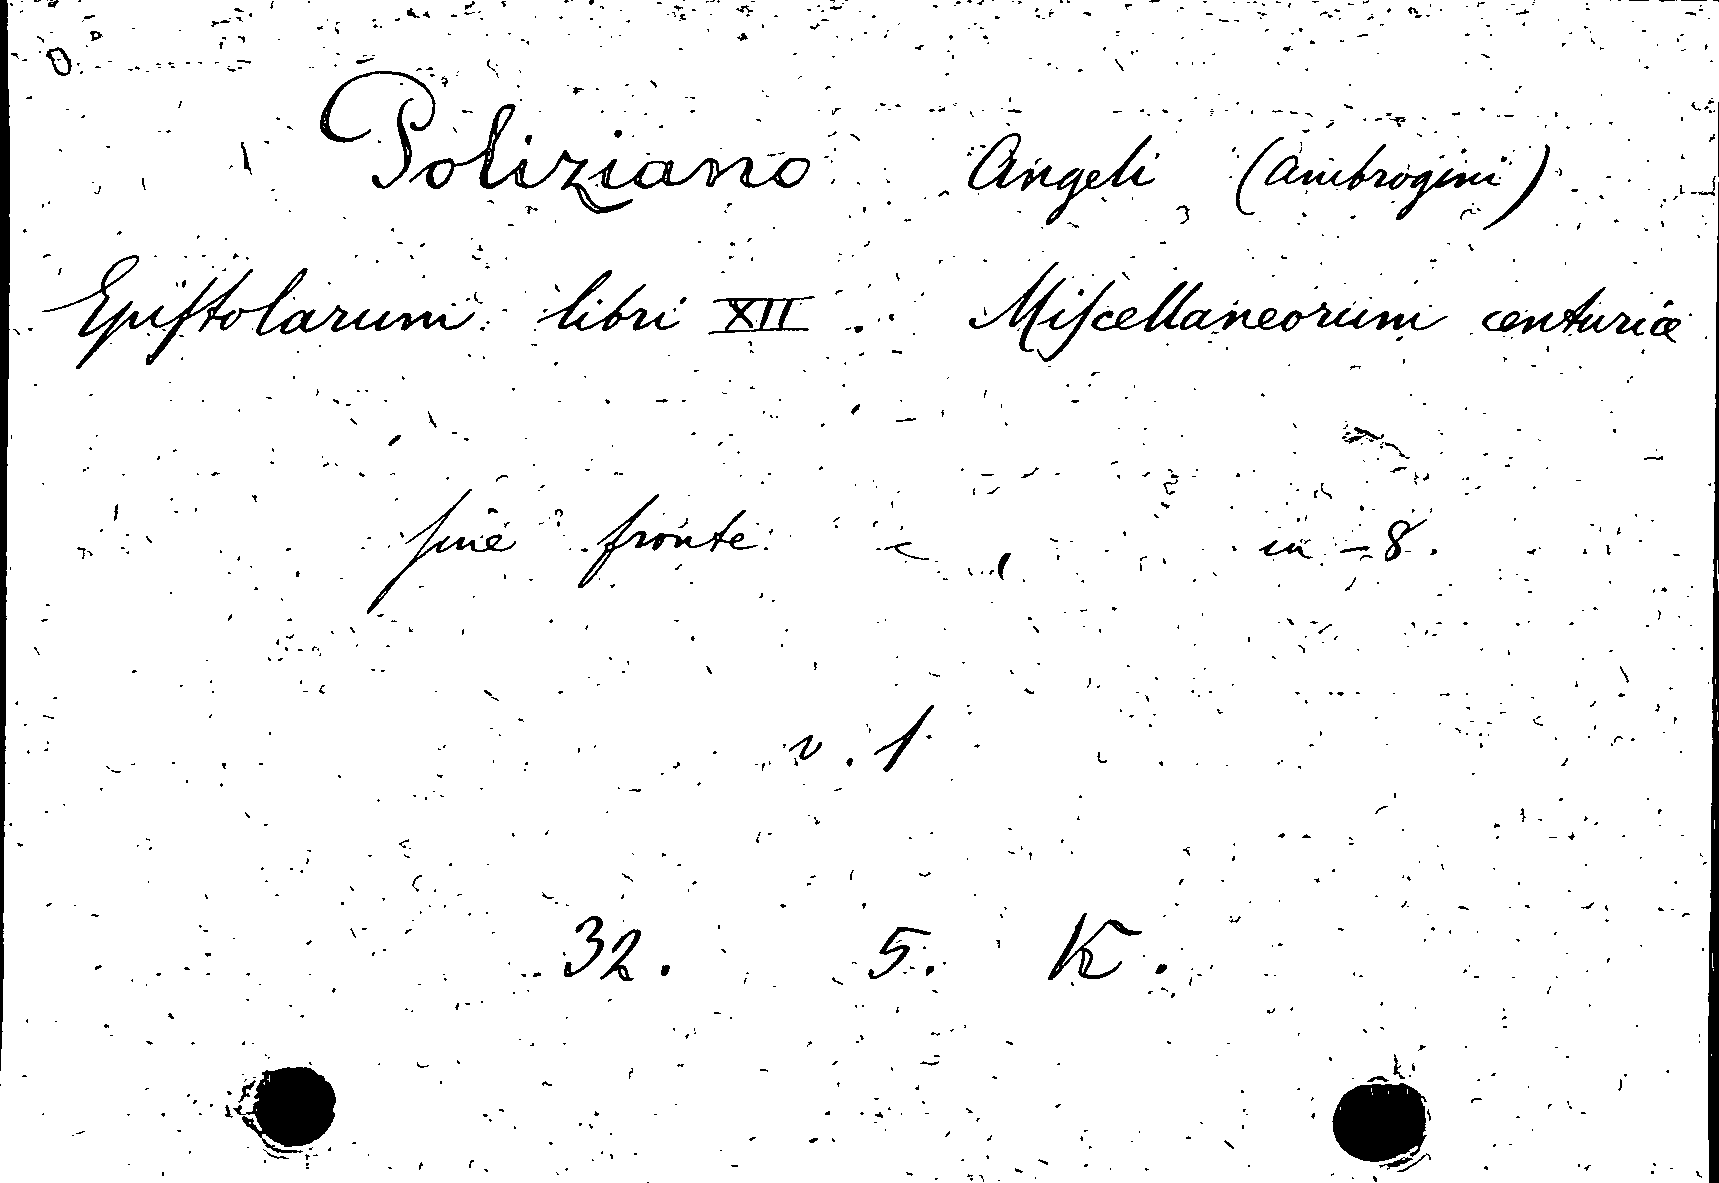 Poliziano Angeli (Ambrogini)
Epiſtolarum libri XII. Miſcellaneorum centuriæ
ſine fronte in-8.
v. 1
32. 5. K.